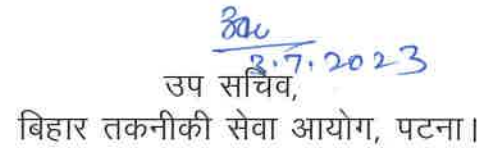 3.7.2023
उप सचिव,
बिहार तकनीकी सेवा आयोग, पटना।